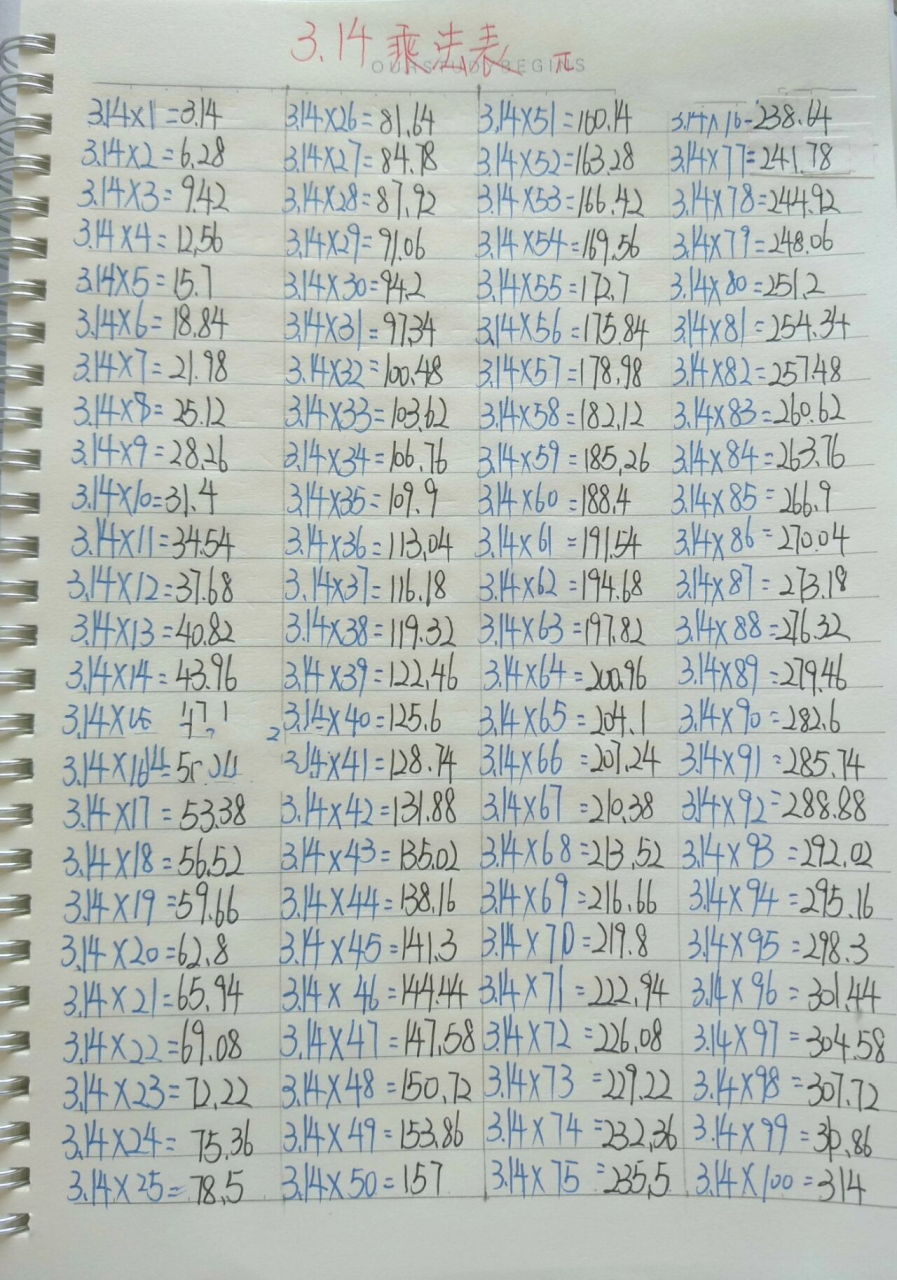 3.14乘法表 π
OURSTUDYBEGINS
3.14×1=3.14
3.14×2=6.28
3.14×3=9.42
3.14×4=12.56
3.14×5=15.7
3.14×6=18.84
3.14×7=21.98
3.14×8=25.12
3.14×9=28.26
3.14×10=31.4
3.14×11=34.54
3.14×12=37.68
3.14×13=40.82
3.14×14=43.96
3.14×15 47.1
3.14×16=50.24
3.14×17=53.38
3.14×18=56.52
3.14×19=59.66
3.14×20=62.8
3.14×21=65.94
3.14×22=69.08
3.14×23=72.22
3.14×24=75.36
3.14×25=78.5
3.14×26=81.64
3.14×27=84.78
3.14×28=87.92
3.14×29=91.06
3.14×30=94.2
3.14×31=97.34
3.14×32=100.48
3.14×33=103.62
3.14×34=106.76
3.14×35=109.9
3.14×36=113.04
3.14×37=116.18
3.14×38=119.32
3.14×39=122.46
3.14×40=125.6
3.14×41=128.74
3.14×42=131.88
3.14×43=135.02
3.14×44=138.16
3.14×45=141.3
3.14×46=144.44
3.14×47=147.58
3.14×48=150.72
3.14×49=153.86
3.14×50=157
3.14×51=160.14
3.14×52=163.28
3.14×53=166.42
3.14×54=169.56
3.14×55=172.7
3.14×56=175.84
3.14×57=178.98
3.14×58=182.12
3.14×59=185.26
3.14×60=188.4
3.14×61=191.54
3.14×62=194.68
3.14×63=197.82
3.14×64=200.96
3.14×65=204.1
3.14×66=207.24
3.14×67=210.38
3.14×68=213.52
3.14×69=216.66
3.14×70=219.8
3.14×71=222.94
3.14×72=226.08
3.14×73=229.22
3.14×74=232.36
3.14×75=235.5
3.14×76=238.64
3.14×77=241.78
3.14×78=244.92
3.14×79=248.06
3.14×80=251.2
3.14×81=254.34
3.14×82=257.48
3.14×83=260.62
3.14×84=263.76
3.14×85=266.9
3.14×86=270.04
3.14×87=273.18
3.14×88=276.32
3.14×89=279.46
3.14×90=282.6
3.14×91=285.74
3.14×92=288.88
3.14×93=292.02
3.14×94=295.16
3.14×95=298.3
3.14×96=301.44
3.14×97=304.58
3.14×98=307.72
3.14×99=310.86
3.14×100=314